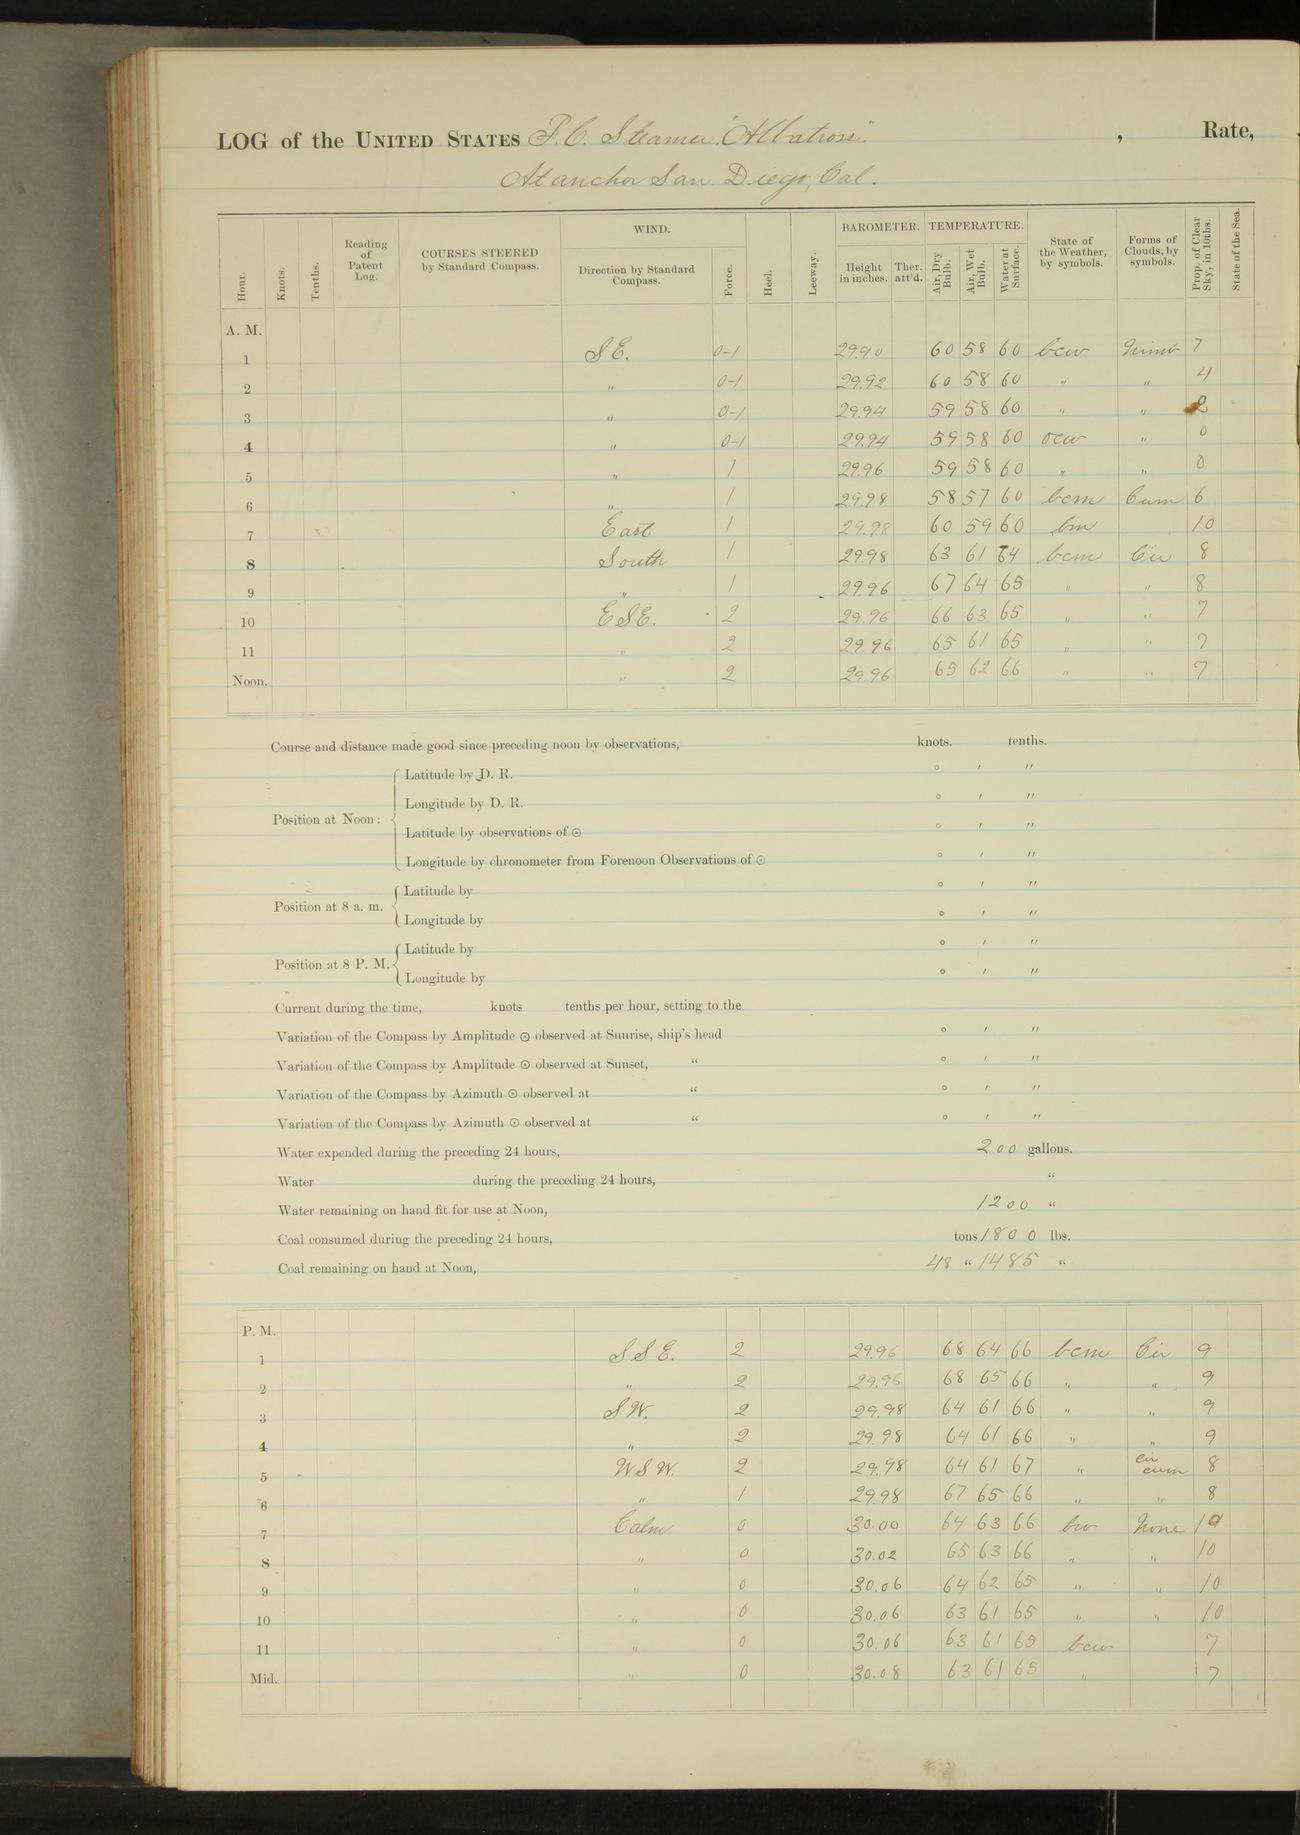 LOG of the UNITED STATES F.C. Steamer "Albatross" , Rate,
At anchor San Diego, Cal.
Hour. Knots. Tenths. Reading of Patent Log. COURSES STEERED by Standard Compass. WIND. Direction by Standard Compass. Force. Heel. Leeway. BAROMETER. Height in inches. Ther. att'd. TEMPERATURE. Air, Dry Bulb. Air, Wet Bulb. Water at Surface. State of the Weather, by symbols. Forms of Clouds, by symbols. Prop. of Clear Sky, in 10ths. State of the Sea.
A. M.
1 SE. 0-1 29.90 60 58 60 bcw Nimb 7
2 " 0-1 29.92 60 58 60 " " 4
3 " 0-1 29.94 59 58 60 " " 2
4 " 0-1 29.94 59 58 60 ocw " 0
5 " 1 29.96 59 58 60 " " 0
6 " 1 29.98 58 57 60 bcm Cum 6
7 East 1 29.98 60 59 60 bm 10
8 South 1 29.98 63 61 64 bcm Cir 8
9 " 1 29.96 67 64 65 " " 8
10 ESE. 2 29.96 66 63 65 " " 7
11 " 2 29.96 65 61 65 " " 7
Noon. " 2 29.96 65 62 66 " " 7
Course and distance made good since preceding noon by observations, knots. tenths.
Latitude by D. R. ° ′ ″
Longitude by D. R. ° ′ ″
Position at Noon:
Latitude by observations of ☉ ° ′ ″
Longitude by chronometer from Forenoon Observations of ☉ ° ′ ″
Latitude by ° ′ ″
Position at 8 a. m.
Longitude by ° ′ ″
Latitude by ° ′ ″
Position at 8 P. M.
Longitude by ° ′ ″
Current during the time, knots tenths per hour, setting to the
Variation of the Compass by Amplitude ☉ observed at Sunrise, ship's head ° ′ ″
Variation of the Compass by Amplitude ☉ observed at Sunset, “ ° ′ ″
Variation of the Compass by Azimuth ☉ observed at “ ° ′ ″
Variation of the Compass by Azimuth ☉ observed at “ ° ′ ″
Water expended during the preceding 24 hours, 200 gallons.
Water during the preceding 24 hours, “
Water remaining on hand fit for use at Noon, 1200 “
Coal consumed during the preceding 24 hours, tons 1800 lbs.
Coal remaining on hand at Noon, 48 “ 1485 “
P. M.
1 SSE. 2 29.96 68 64 66 bcm Cir 9
2 " 2 29.96 68 65 66 " " 9
3 SW. 2 29.98 64 61 66 " " 9
4 " 2 29.98 64 61 66 " " 9
5 WSW. 2 29.98 64 61 67 " cir cum 8
6 " 1 29.98 67 65 66 " " 8
7 Calm 0 30.00 64 63 66 bw None 10
8 " 0 30.02 65 63 66 " " 10
9 " 0 30.06 64 62 65 " " 10
10 " 0 30.06 63 61 65 " " 10
11 " 0 30.06 63 61 65 bcw 7
Mid. " 0 30.08 63 61 65 " 7